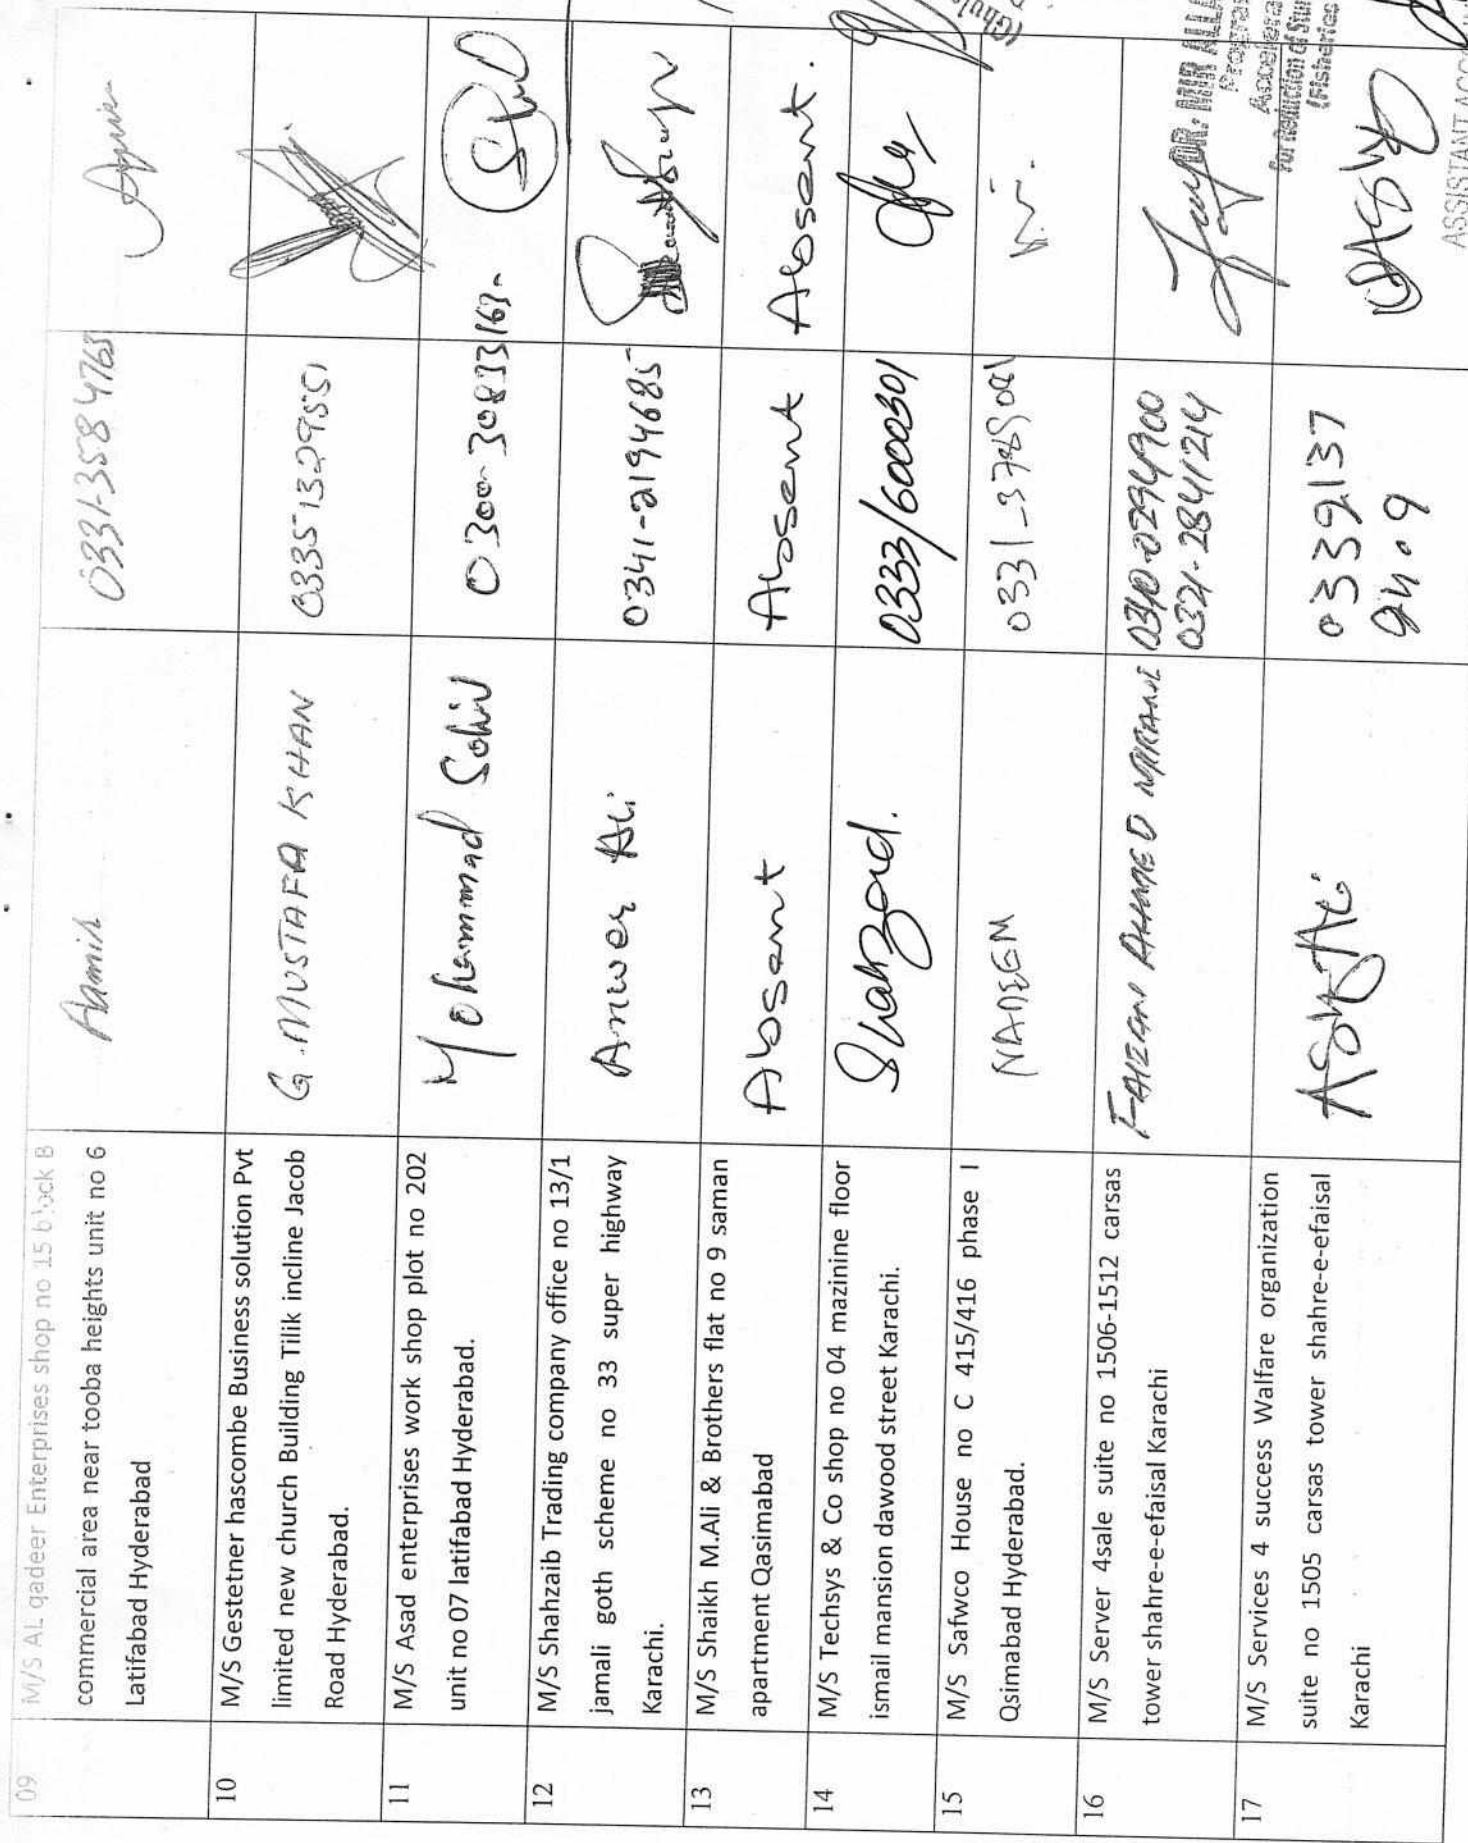 09 M/S AL qadeer Enterprises shop no 15 block B
commercial area near tooba heights unit no 6
Latifabad Hyderabad
Aamir
0331-3584763
10 M/S Gestetner hascombe Business solution Pvt
limited new church Building Tilik incline Jacob
Road Hyderabad.
G. MUSTAFA KHAN
03351329551
11 M/S Asad enterprises work shop plot no 202
unit no 07 latifabad Hyderabad.
Mohammad Sohil
0300-30833163-
12 M/S Shahzaib Trading company office no 13/1
jamali goth scheme no 33 super highway
Karachi.
Anwer Ali
0341-2194685
13 M/S Shaikh M.Ali & Brothers flat no 9 saman
apartment Qasimabad
Absent
Absent
Absent.
14 M/S Techsys & Co shop no 04 mazinine floor
ismail mansion dawood street Karachi.
Shahzad.
0333/6000301
15 M/S Safwco House no C 415/416 phase I
Qsimabad Hyderabad.
NADEEM
16 M/S Server 4sale suite no 1506-1512 carsas
tower shahre-e-efaisal Karachi
FAIZAN AHMED MIRANI
0321-2841214
DR: MIR
For Reduction of
(Fisheries
17 M/S Services 4 success Walfare organization
suite no 1505 carsas tower shahre-e-efaisal
Karachi
Asif Ali
0339137
ASSISTANT